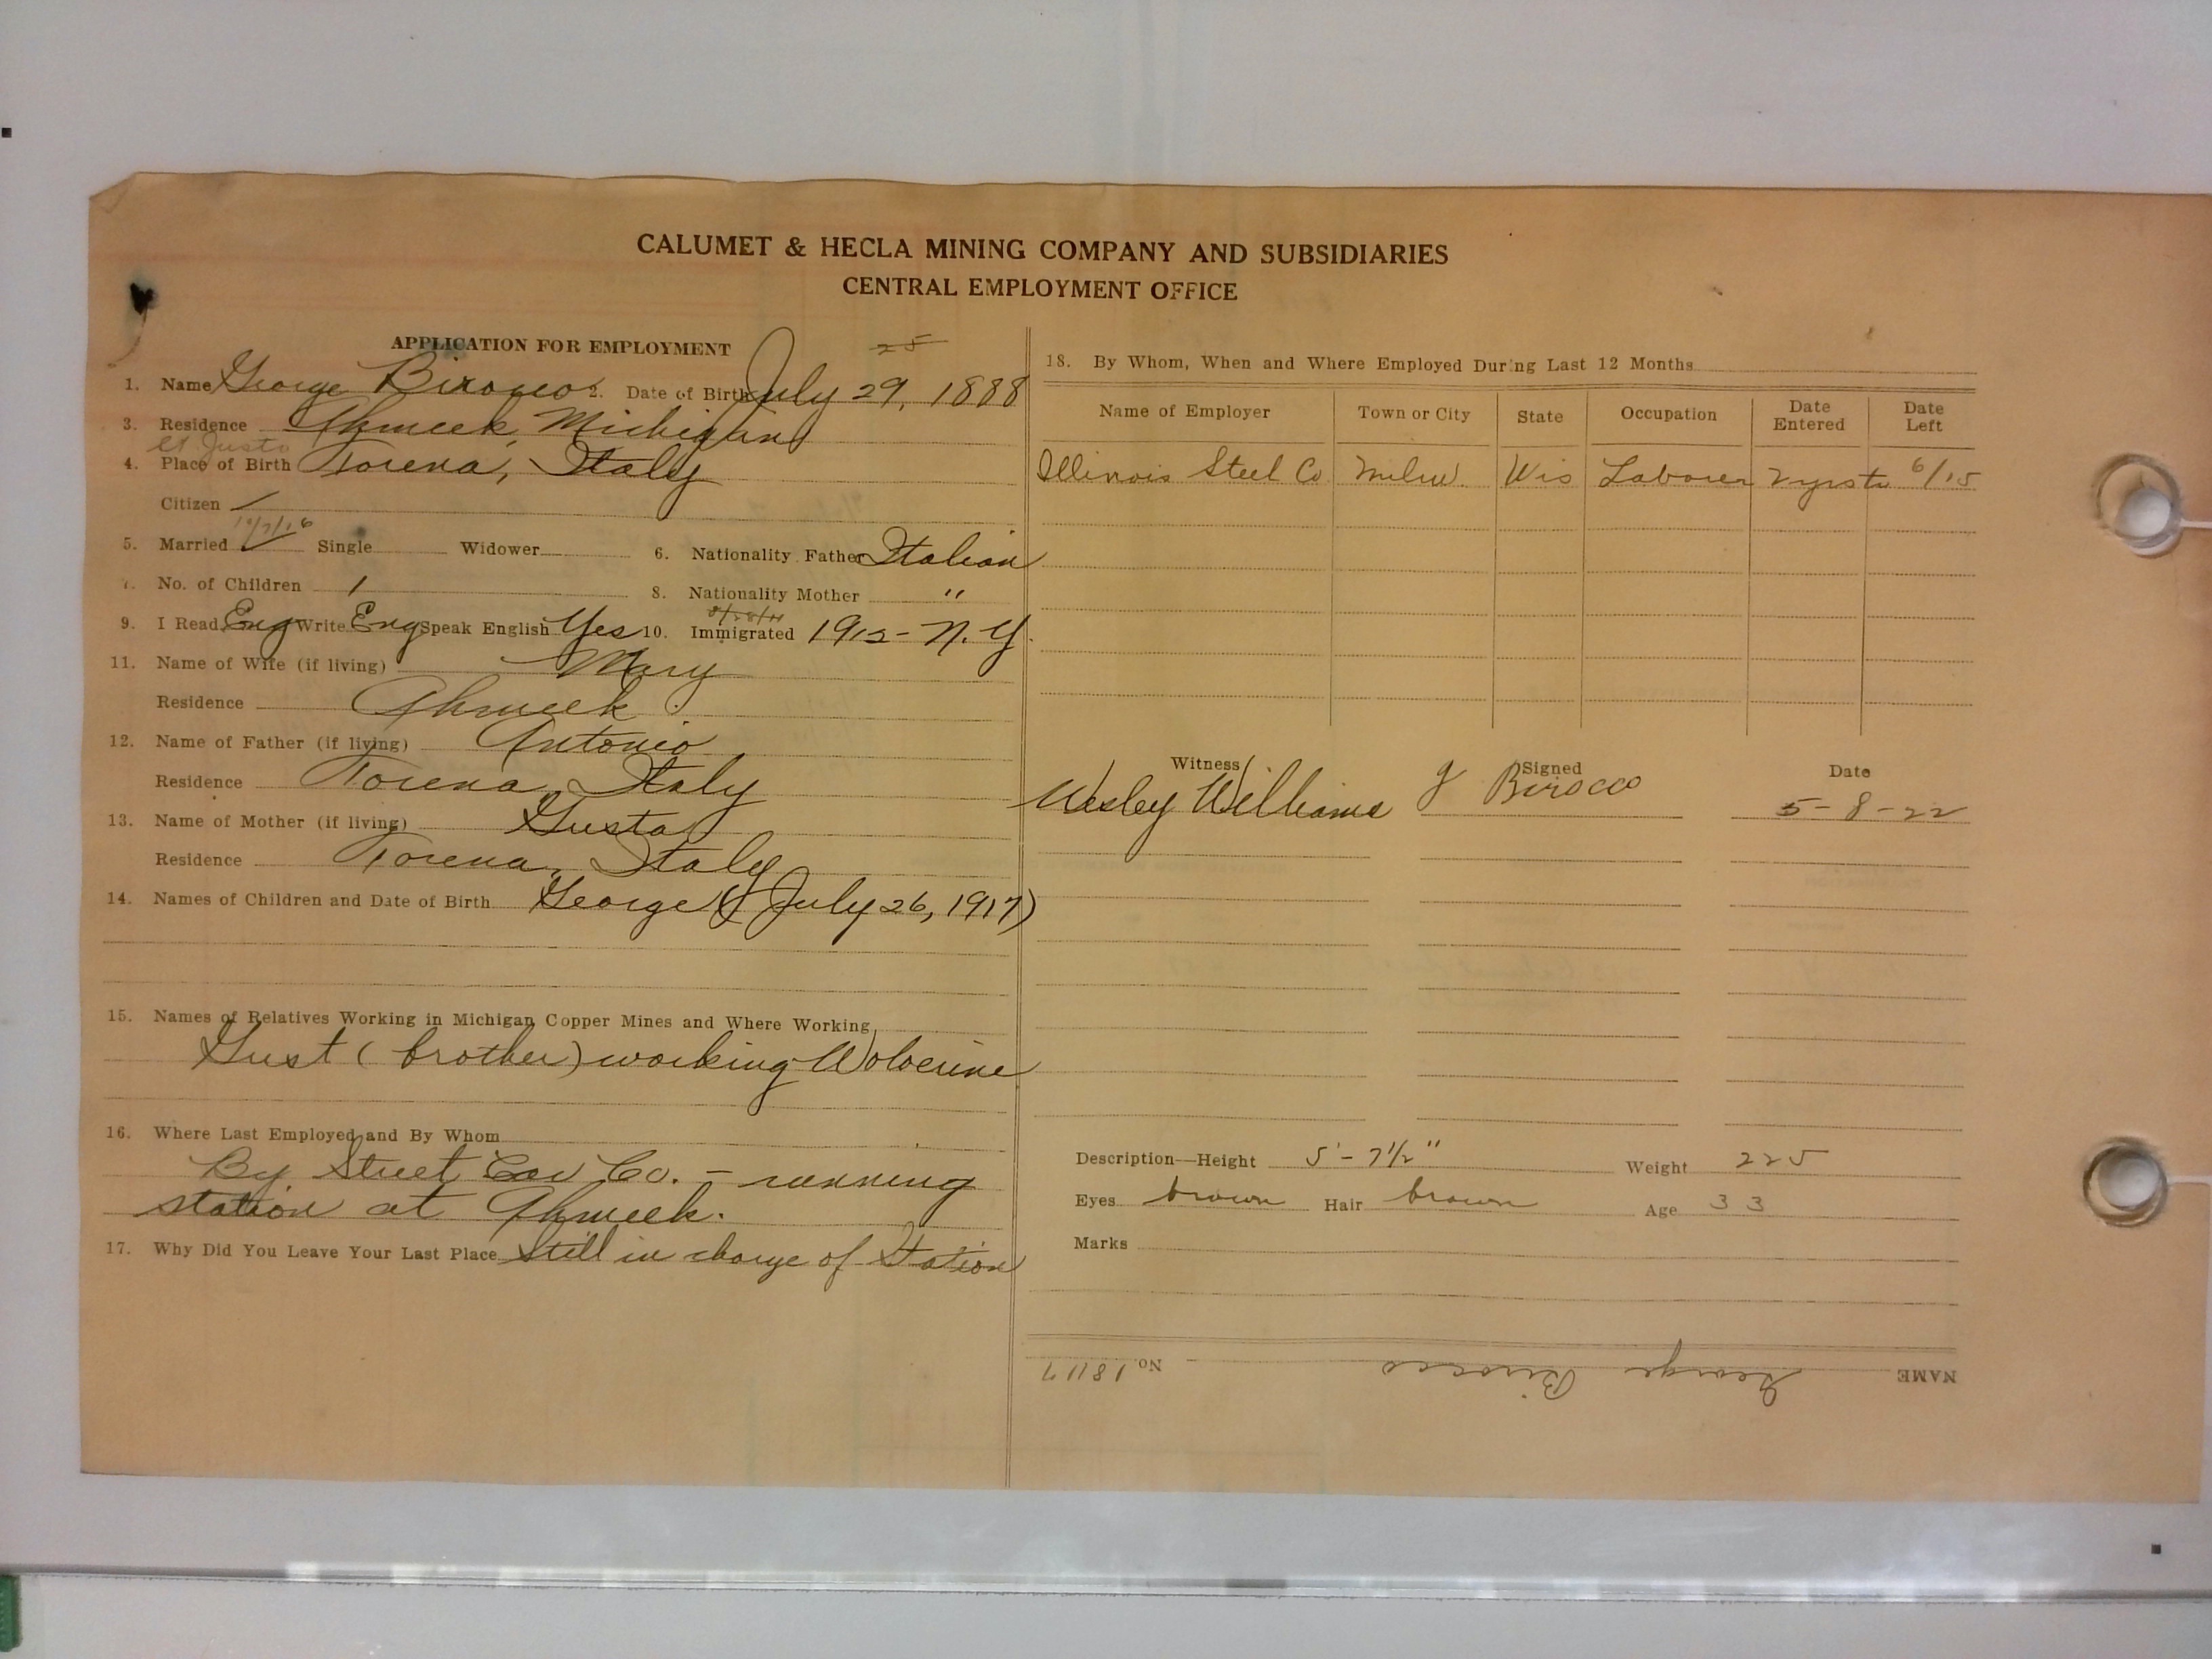 CALUMET & HECLA MINING COMPANY AND SUBSIDIARIES
CENTRAL EMPLOYMENT OFFICE
APPLICATION FOR EMPLOYMENT
25
1. Name George Birocco 2. Date of Birth July 29, 1888
3. Residence Ahmeek, Michigan
St Justo
4. Place of Birth Torena, Italy
Citizen /
10/7/16
5. Married ✓ Single Widower 6. Nationality Father Italian
7. No. of Children 1 8. Nationality Mother "
9. I Read Eng Write Eng Speak English Yes 10. Immigrated 1912 - N.Y.
11. Name of Wife (if living) Mary
Residence Ahmeek
12. Name of Father (if living) Antonio
Residence Torena, Italy
13. Name of Mother (if living) Gusta
Residence Torena, Italy
14. Names of Children and Date of Birth George (July 26, 1917)
15. Names of Relatives Working in Michigan Copper Mines and Where Working
Gust (brother) working Wolverine
16. Where Last Employed and By Whom
By Street Car Co. - running
station at Ahmeek.
17. Why Did You Leave Your Last Place Still in charge of Station
18. By Whom, When and Where Employed During Last 12 Months
Name of Employer Town or City State Occupation Date Entered Date Left
Illinois Steel Co Milw. Wis Laborer 2 yrs to 6/15
Witness Signed Date
Wesley Williams G Birocco 5-8-22
Description—Height 5'-7½" Weight 225
Eyes brown Hair brown Age 33
Marks
NAME George Birocco No. 18117